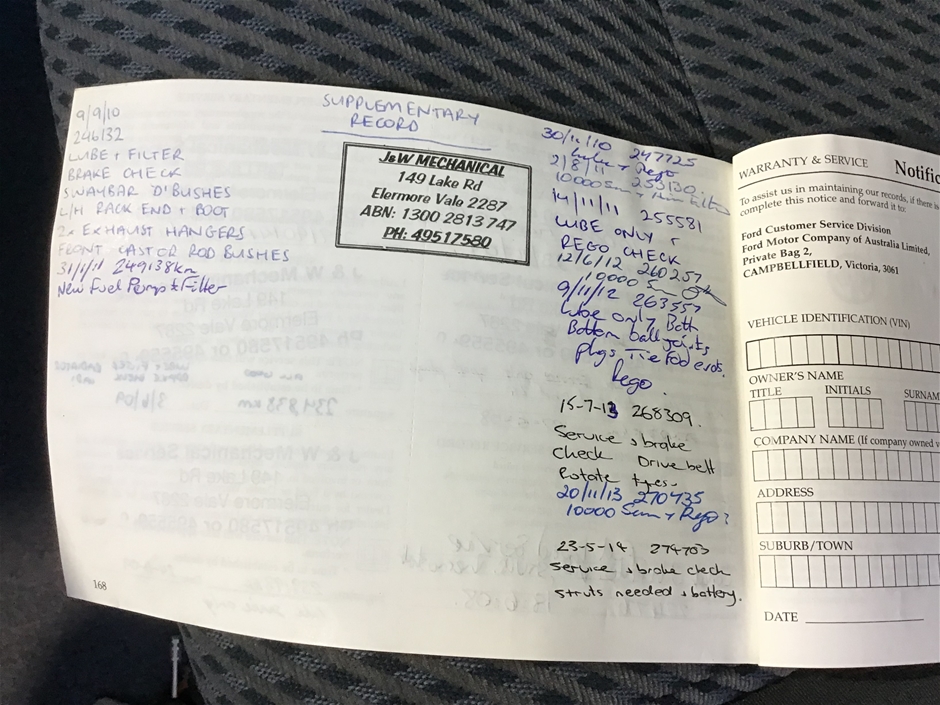 SUPPLEMENTARY
RECORD
9/9/10
246132
LUBE + FILTER
BRAKE CHECK
SWAYBAR 'D' BUSHES
L/H RACK END + BOOT
2x EXHAUST HANGERS
FRONT CASTOR ROD BUSHES
31/1/11 249138km
New Fuel Pump & Filter
J&W MECHANICAL
149 Lake Rd
Elermore Vale 2287
ABN: 1300 2813 747
PH: 49517580
30/11/10 247725
Lube + Rego
2/8/11 253130.
10000
14/11/11 255581
LUBE ONLY +
REGO CHECK
12/6/12 260257
10000
9/11/12 263557
Lube only Both
Bottom ball joints
plugs Tie Rod ends.
Rego
15-7-13 268309.
Service & brake
check Drive belt
Rotate tyres.
20/11/13 270435
10000 + Rego
23-5-14 274703
service & brake check
struts needed & battery.
168
WARRANTY & SERVICE
Notific
To assist us in maintaining our records, if there is
complete this notice and forward it to:
Ford Customer Service Division
Ford Motor Company of Australia Limited,
Private Bag 2,
CAMPBELLFIELD, Victoria, 3061
VEHICLE IDENTIFICATION (VIN)
OWNER'S NAME
TITLE INITIALS SURNAM
COMPANY NAME (If company owned v
ADDRESS
SUBURB/TOWN
DATE